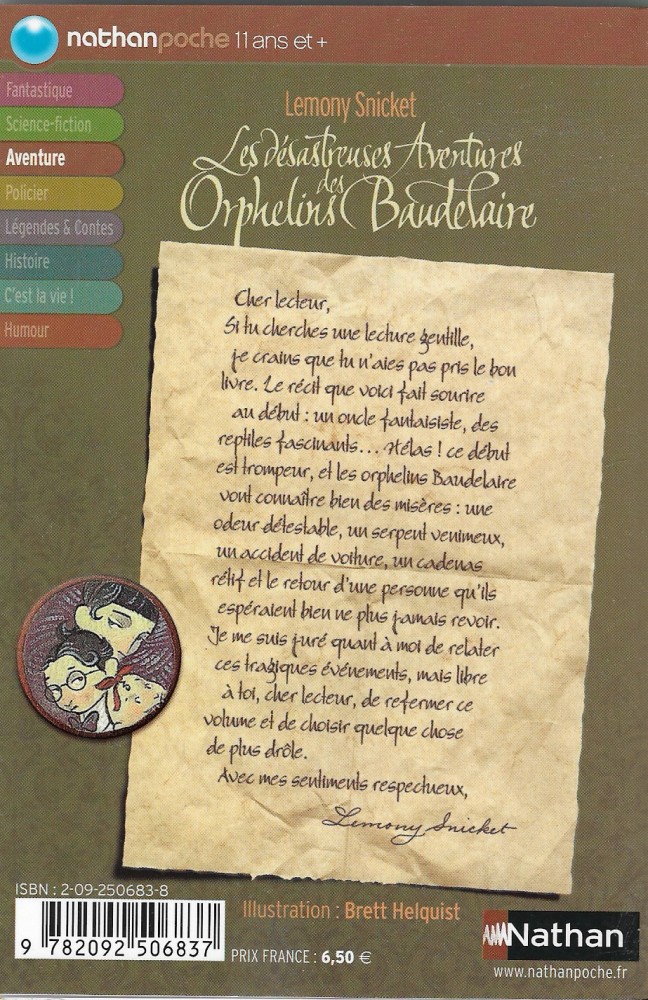 nathanpoche 11 ans et +
Fantastique
Science-fiction
Aventure
Policier
Légendes & Contes
Histoire
C'est la vie !
Humour
Lemony Snicket
Les désastreuses Aventures
des
Orphelins Baudelaire
Cher lecteur,
Si tu cherches une lecture gentille,
je crains que tu n'aies pas pris le bon
livre. Le récit que voici fait sourire
au début : un oncle fantaisiste, des
reptiles fascinants... Hélas ! ce début
est trompeur, et les orphelins Baudelaire
vont connaître bien des misères : une
odeur détestable, un serpent venimeux,
un accident de voiture, un cadenas
rétif et le retour d'une personne qu'ils
espéraient bien ne plus jamais revoir.
Je me suis juré quant à moi de relater
ces tragiques événements, mais libre
à toi, cher lecteur, de refermer ce
volume et de choisir quelque chose
de plus drôle.
Avec mes sentiments respectueux,
Lemony Snicket
ISBN : 2-09-250683-8
9 782092 506837
Illustration : Brett Helquist
PRIX FRANCE : 6,50 €
Nathan
www.nathanpoche.fr